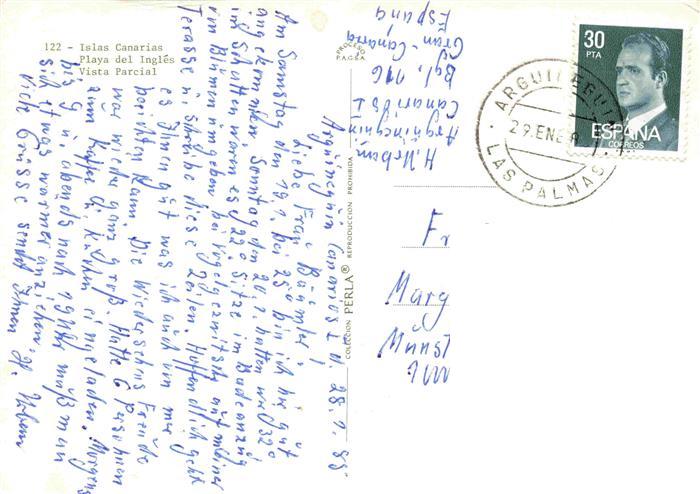 122 - Islas Canarias
Playa del Inglés
Vista Parcial
PROCESO
P.A.G.S.A.
COLECCION PERLA® REPRODUCCION PROHIBIDA
30
PTA
ESPAÑA
CORREOS
ARGUINEGUIN
29 ENE
LAS PALMAS
H. Urban
Arguineguin
Canarios I
Bgl. 116
Gran-Canaria
Espana
Arguineguin Canarios I d. 28.1.85
Liebe Frau Bäumler!
Am Samstag den 19.1. bei 25° bin ich hie gut
angekommen, Sonntag den 20.1. hatten wir 32°
im Schatten waren es 22°. Sitze im Badeanzug
von Blumen umgeben bei Vogelgezwitsch auf meiner
Terasse u. Schreibe diese Zeilen. Hoffendlich geht
es Ihnen gut was ich auch von mir
berichten kann. Die Wiedersehns Freude
war wieder ganz groß. Hatte 6 Personen
zum Kaffee u. Kuchen eingeladen. Morgens
bis 9 u. abends nach 19 Uhr muß man
sich etwas wärmer anziehen.
Viele Grüsse sendet Ihnen H. Urban
Fr
Marg
Münst